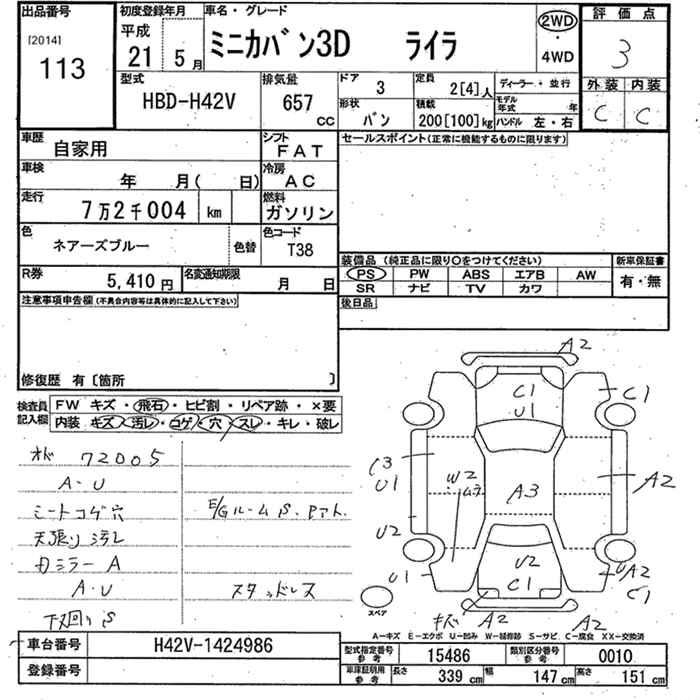 出品番号
[2014]
113
初度登録年月
平成
21 5 月
車名・グレード
ミニカバン3D ライラ
2WD
・
4WD
評価点
3
外装 内装
C C
型式
HBD-H42V
排気量
657 cc
ドア
3
形状
バン
定員
2[4]人
積載
200[100]kg
ディーラー・並行
モデル年式 年
ハンドル 左・右
車歴
自家用
シフト
FAT
車検
年 月( 日)
冷房
AC
走行
7万2千004 km
燃料
ガソリン
色
ネアーズブルー
色替
色コード
T38
R券
5,410円
名変通知期限
月 日
セールスポイント(正常に機能するものに限ります)
装備品(純正品に限り○をつけてください)
PS PW ABS エアB AW
SR ナビ TV カワ
新車保証書
有・無
後日品
注意事項申告欄(不具合内容等は具体的に記入して下さい)
修復歴 有〔箇所 〕
検査員記入欄
FW キズ・飛石・ヒビ割・リペア跡・×要
内装 キズ・汚レ・コゲ・穴・スレ・キレ・破レ
72005
A・U
シートコゲ穴
天張り汚レ
カミラー A
A・U
下回りS
E/GルームS、Pアト
スタッドレス
A2
C1
U1
C1
C3
U1
W2
A3
A2
U2
U1
U2
C1
A2
C1
キズ A2
A2
スペア
A−キズ E−エクボ U−凹み W−補修跡 S−サビ C−腐食 XX−交換済
車台番号
H42V-1424986
登録番号
型式指定番号 参考
15486
類別区分番号 参考
0010
車庫証明用 参考
長さ 339 cm 幅 147 cm 高さ 151 cm